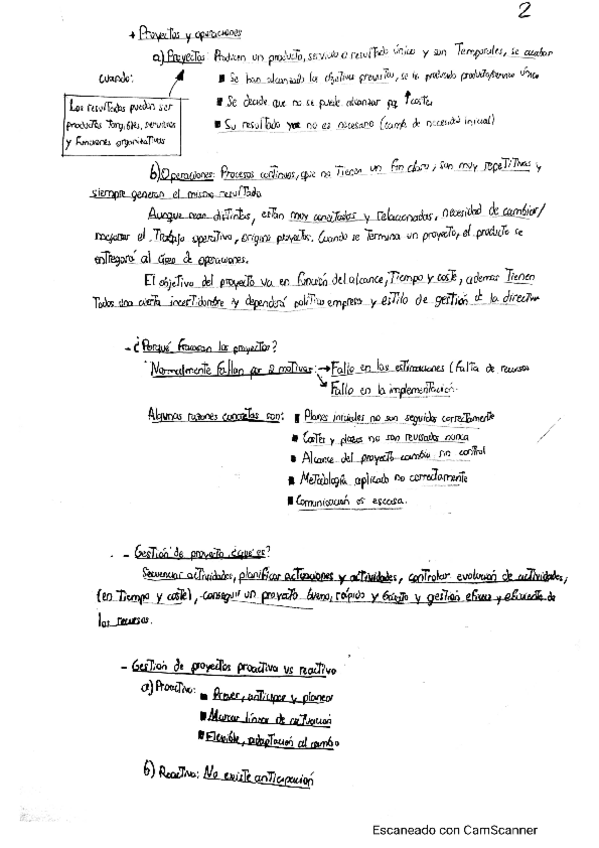 2
+ Proyectos y operaciones
a) Proyectos: Producen un producto, servicio o resultado único y son Temporales, se acaban
cuando:
■ Se han alcanzado los objetivos previstos, se ha producido producto/servicio único
■ Se decide que no se puede alcanzar por ↑ costes
■ Su resultado ya no es necesario (cambio de necesidad inicial)
Los resultados pueden ser
productos tangibles, servicios
y Funciones organizativas
b) Operaciones: Procesos continuos, que no Tienen un fin claro, son muy repetitivas y
siempre generan el mismo resultado
Aunque sean distintos, están muy conectados y relacionados, necesidad de cambiar/
mejorar el Trabajo operativo, origina proyectos. Cuando se termina un proyecto, el producto se
entregará al área de operaciones.
El objetivo del proyecto va en función del alcance, Tiempo y coste, además Tienen
Todos una cierta incertidumbre y dependerá política empresa y estilo de gestión de la directiva
- ¿Porqué fracasan los proyectos?
Normalmente Fallan por 2 motivos: → Fallo en las estimaciones (Falta de recursos
Fallo en la implementación.
Algunas razones concretas son: ■ Planes iniciales no son seguidos correctamente
■ Costes y plazos no son revisados nunca
■ Alcance del proyecto cambia sin control
■ Metodología aplicada no correctamente
■ Comunicación es escasa.
- Gestión de proyecto ¿qué es?
Secuenciar actividades, planificar actuaciones y actividades, controlar evolución de actividades,
(en Tiempo y coste), conseguir un proyecto bueno, rápido y barato y gestión eficaz y eficiente de
los recursos.
- Gestión de proyectos proactiva vs reactiva
a) Proactiva: ■ Prever, anticipar y planear
■ Marcar líneas de actuación
■ Flexible, adaptación al cambio
b) Reactiva: No existe anticipación
Escaneado con CamScanner